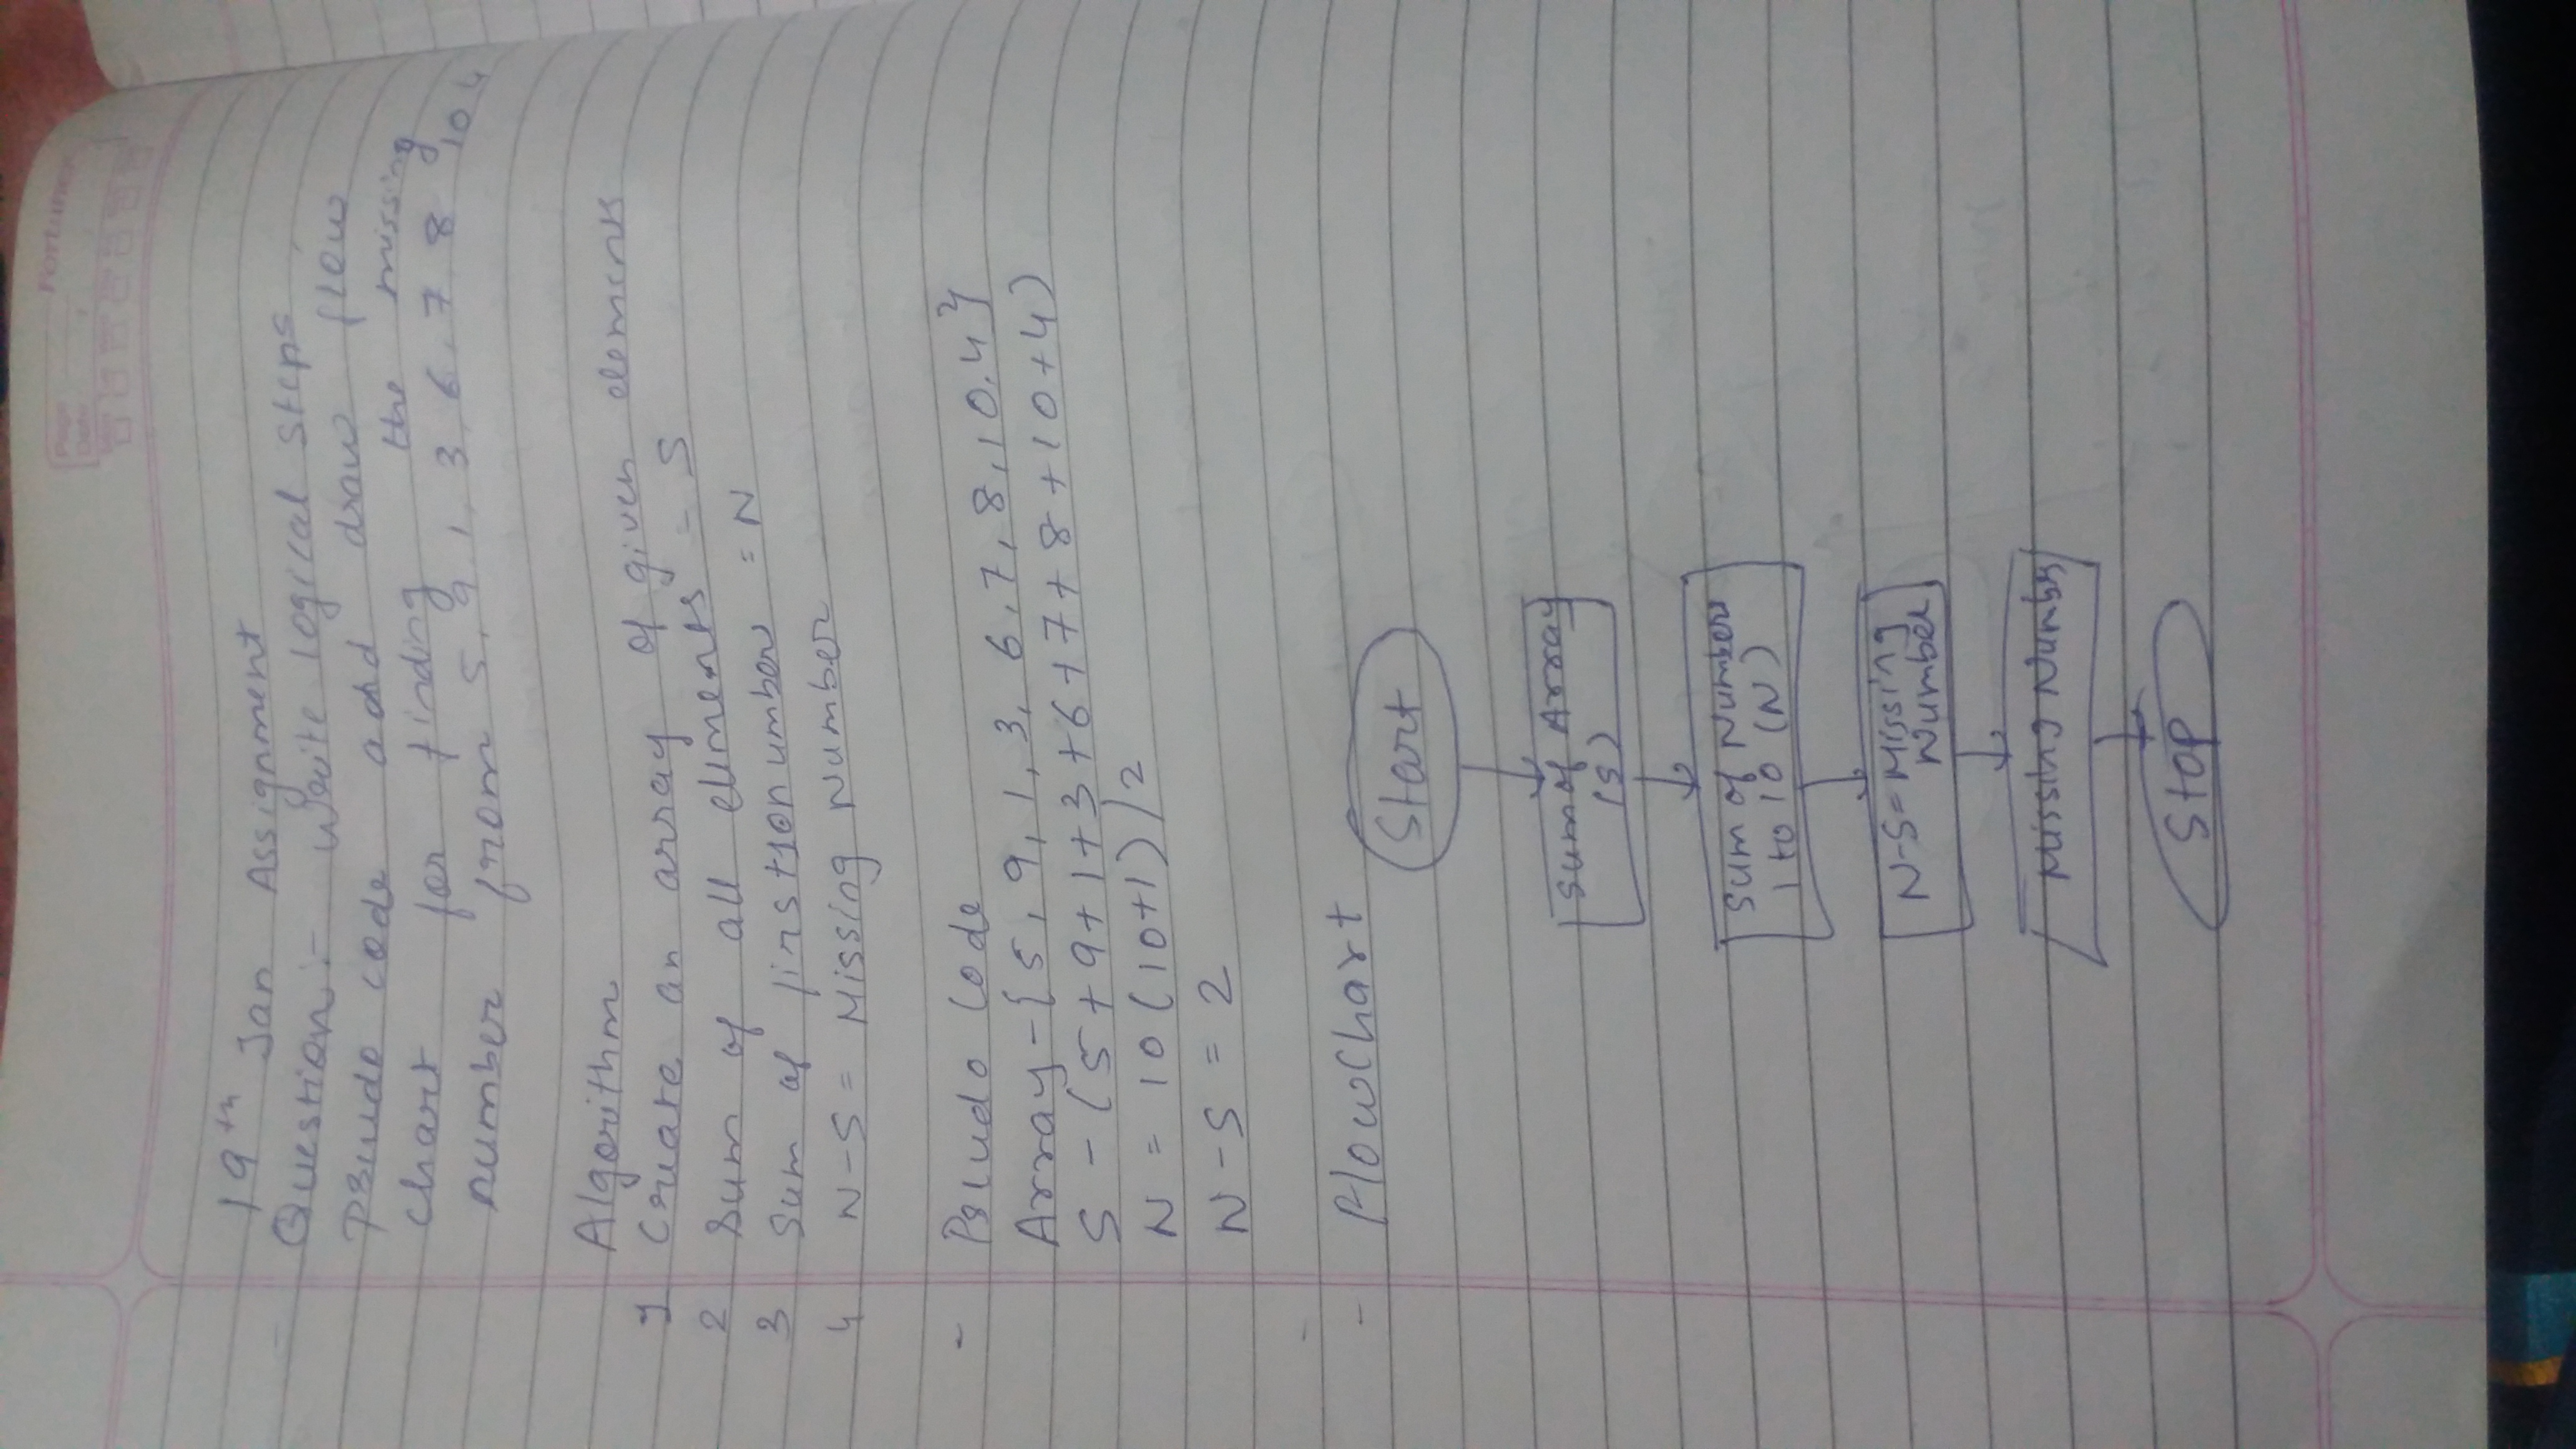 Fortune
Page
Date
19th Jan Assignment
Question:- Write logical steps
Pseudo code add draw flow
chart for finding the missing
number from 5, 9 1, 3, 6, 7 8 10 4
Algorithm
1 Create an array of given elements
2 Sum of all elements - S
3 Sum of first 10 numbers = N
4 N-S = Missing Number
- Pseudo Code
Array-{5, 9, 1, 3, 6, 7, 8, 10, 4}
S - (5+9+1+3+6+7+8+10+4)
N = 10(10+1)/2
N-S = 2
- Flowchart
Start
Sum of Array
(S)
Sum of Numbers
1 to 10 (N)
N-S=Missing
Number
Missing Number
Stop